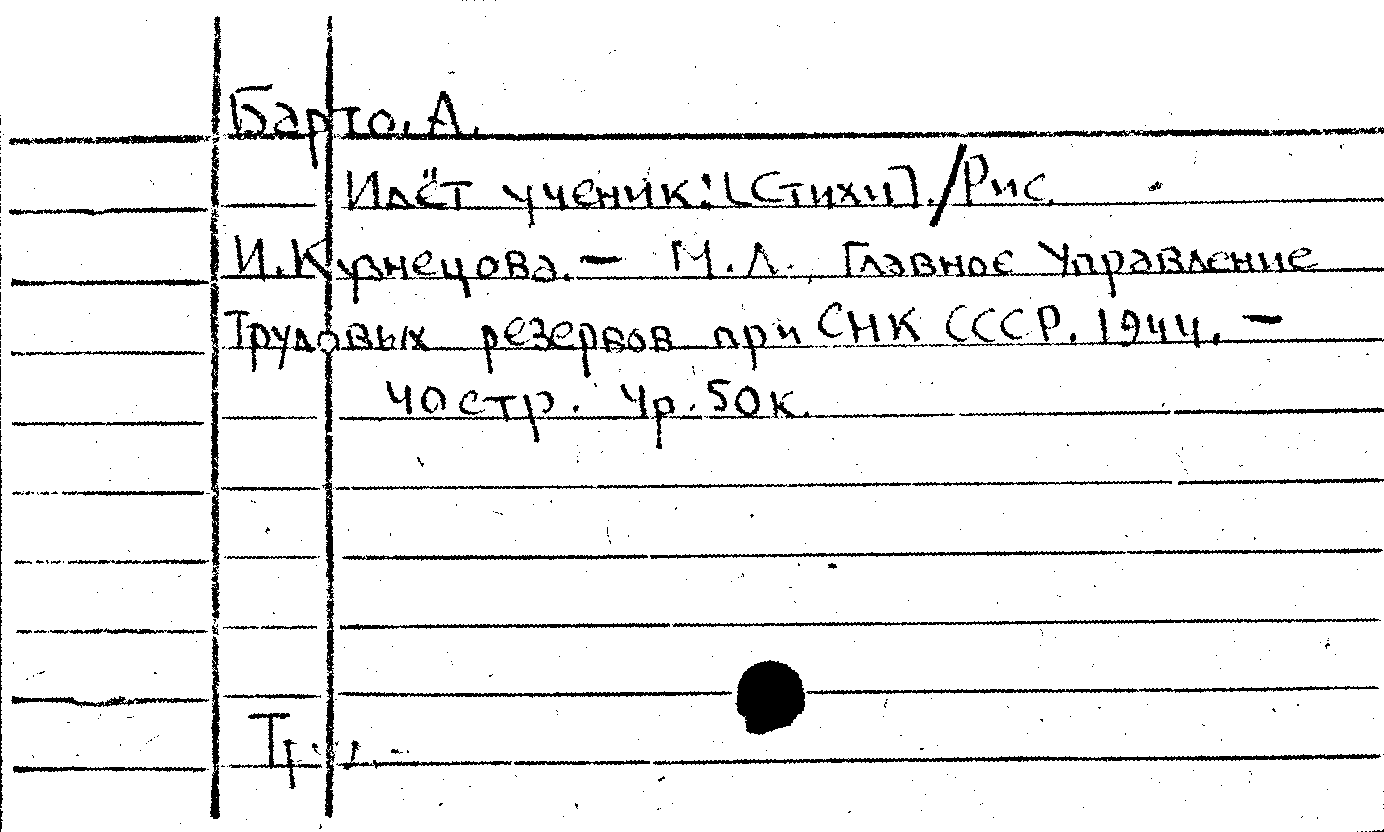 Барто, А.
Идёт ученик! [Стихи]./Рис.
И. Кузнецова. — М.Л., Главное Управление
Трудовых резервов при СНК СССР. 1944. —
40 стр. 4р. 50к.